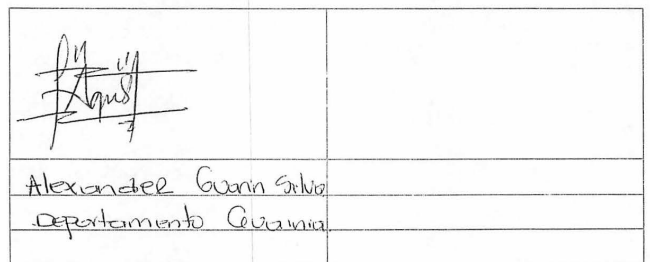 Alexander Guarin Silva
Departamento Guainia